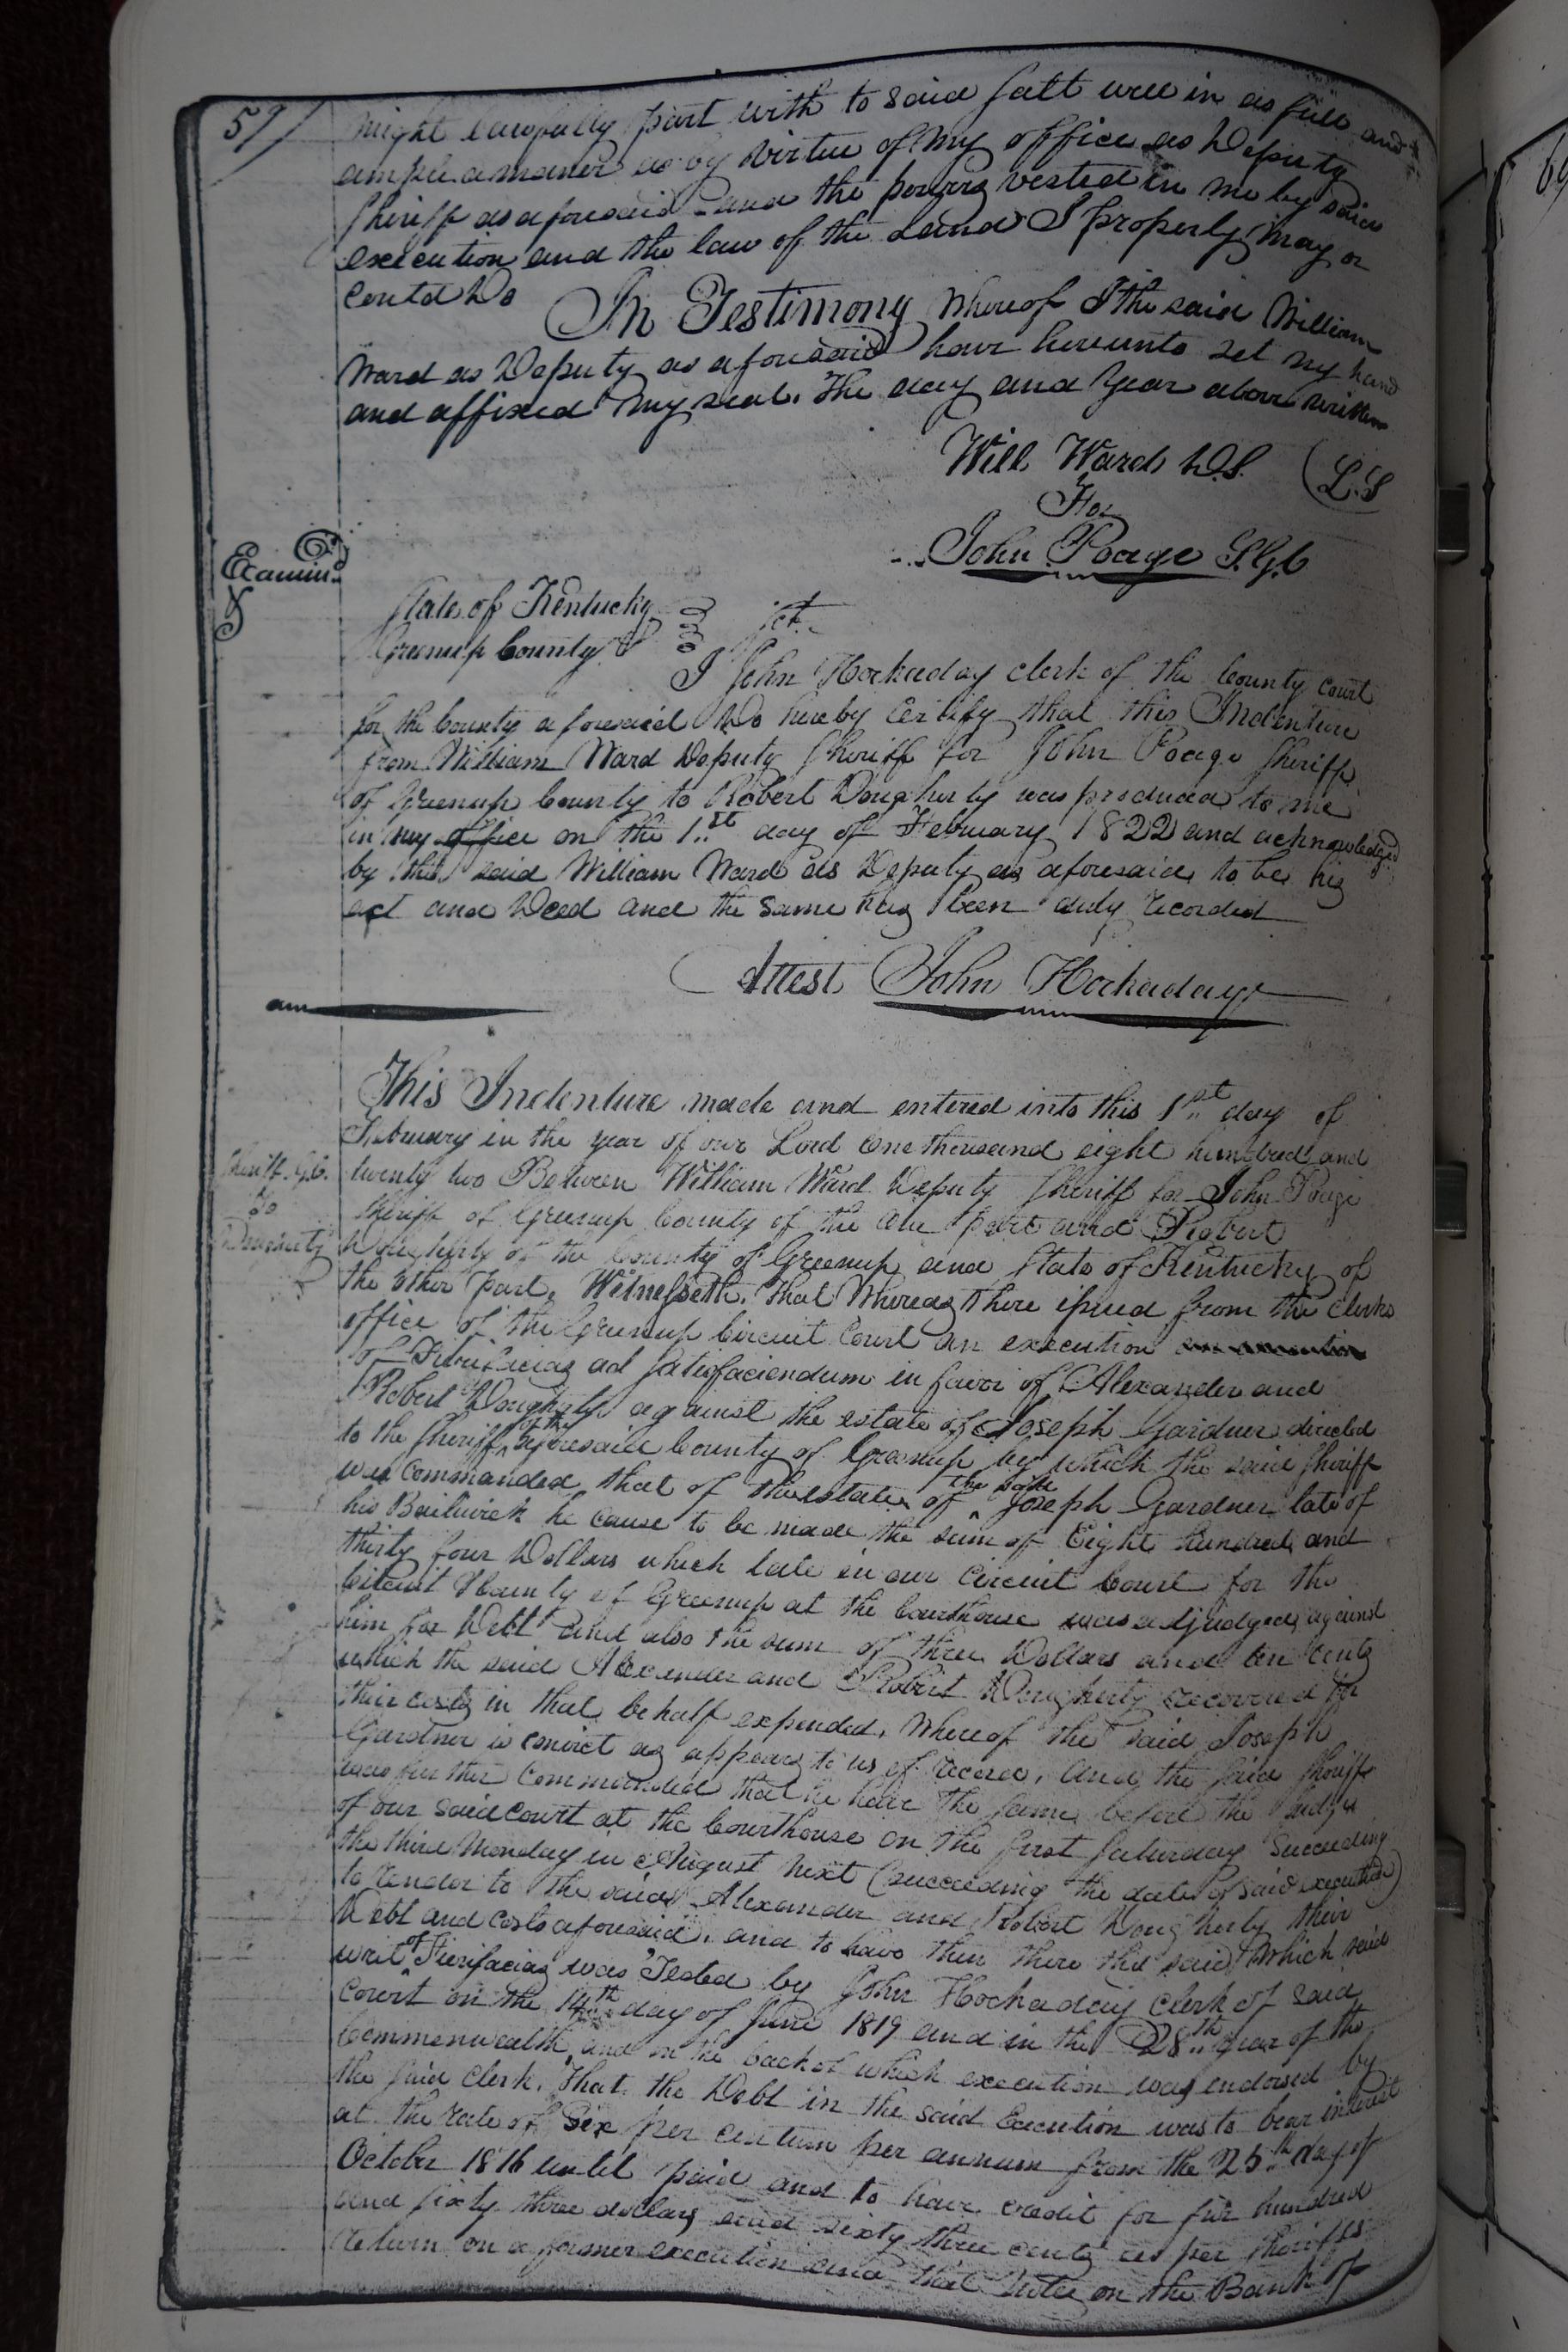 might lawfully part with to said Salt well in as full and
ample a manner as by virtue of my office as Deputy
Sheriff as aforesaid and the powers vested in me by said
execution and the law of the Land I properly may or
Could Do In Testimony Whereof I the said William
Ward as Deputy as aforesaid have hereunto set my hand
and affixed my seal. The day and Year above written
Will Ward D.S. (L.S
For
John Poage S.G.C
Examin.d
State of Kentucky
Greenup County sct.
I John Hockaday clerk of the County court
for the County aforesaid Do hereby Certify that this Indenture
from William Ward Deputy Sheriff for John Poage Sheriff
of Greenup County to Robert Dougherty was produced to me
in my office on the 1st day of February 1822 and acknowledged
by the said William Ward as Deputy as aforesaid to be his
act and Deed and the same has been duly recorded
Attest John Hockaday
This Indenture made and entered into this 1st day of
February in the year of our Lord One thousand eight hundred and
Sheriff. G.C. twenty two Between William Ward Deputy Sheriff for John Poage
To Sheriff of Greenup County of the one part and Robert
Dougherty of the County of Greenup and State of Kentucky of
the other part, Witnesseth, That Whereas there issued from the clerks
office of the Greenup Circuit Court an execution
of Fierifacias ad Satisfaciendum in favor of Alexander and
Robert Dougherty against the estate of Joseph Gardner directed
to the Sheriff of the aforesaid County of Greenup by which the said Sheriff
was commanded that of the estate of the said Joseph Gardner late of
his Bailiwick he cause to be made the sum of Eight hundred and
thirty four Dollars which late in our Circuit Court for the
Circuit & County of Greenup at the Courthouse was adjudged against
him for Debt and also the sum of three Dollars and ten Cents
which the said Alexander and Robert Dougherty recovered for
their costs in that behalf expended, Whereof the said Joseph
Gardner is convict as appears to us of record, And the said Sheriff
was further Commanded that he have the same before the Judge
of our said court at the Courthouse on the first Saturday Succeeding
the third Monday in August next (succeeding the date of said execution)
to render to the said Alexander and Robert Dougherty their
Debt and costs aforesaid, and to have then there the said Which said
writ of Fierifacias was Tested by John Hockaday Clerk of said
Court on the 14th day of June 1819 and in the 28th year of the
Commonwealth and on the back of which execution was endorsed by
the said Clerk, That the Debt in the said Execution was to bear interest
at the rate of Six per centum per annum from the 25th day of
October 1816 until paid and to have credit for hundred
and sixty three dollars and sixty three cents as per Sheriffs
return on a former execution and that Notes on the Bank of